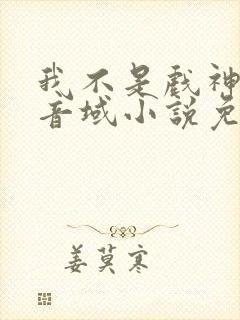 我不是戲神
音域小說免
姜莫寒